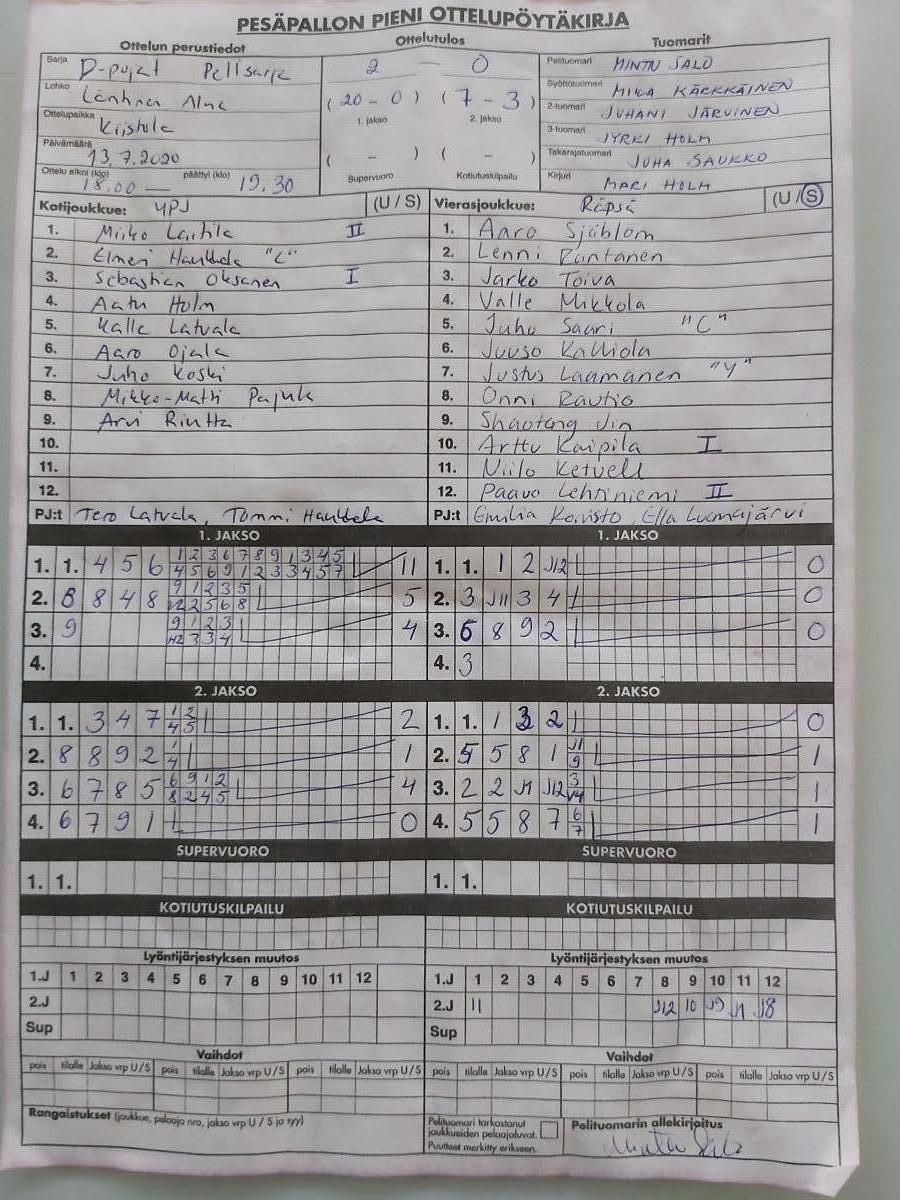 PESÄPALLON PIENI OTTELUPÖYTÄKIRJA
Ottelun perustiedot Ottelutulos Tuomarit
Sarja D-pojat
Lohko
Ottelupaikka
Päivämäärä 13.7.2020
Ottelu alkoi (klo) 18.00 — päättyi (klo) 19.30
2 – 0
(20 – 0) (7 – 3)
1. jakso 2. jakso
( – ) ( – )
Supervuoro Kotiutuskilpailu
Pelituomari MINTTU SALO
Syöttötuomari MIKA KÄRKKÄINEN
2-tuomari JUHANI JÄRVINEN
3-tuomari JYRKI HOLM
Takarajatuomari JUHA SAUKKO
Kirjuri MARI HOLM
Kotijoukkue: YPJ (U / S) Vierasjoukkue: Räpsä (U / S)
1. Miiko Laitila II
2. Elmeri Haukkala "C"
3. Sebastian Oksanen I
4. Aatu Holm
5. Kalle Latvala
6. Aaro Ojala
7. Juho Koski
8. Mikko-Matti
9. Arvi
10.
11.
12.
PJ:t Tero Latvala, Tommi Haukkala
1. Aaro Sjöblom
2. Lenni Rantanen
3. Jarko Toiva
4. Valle Mikkola
5. Juho Saari "C"
6. Juuso Kalliola
7. Justus Laamanen "V"
8. Onni Rautio
9. Shaotong Jin
10. Arttu Kaipila I
11. Niilo Ketvell
12. Paavo Lehtiniemi II
PJ:t Emilia Koivisto, Ella Luomajärvi
1. JAKSO 1. JAKSO
1. 1. 4 5 6 1 2 3 6 7 8 9 1 3 4 5 11
4 5 6 9 1 2 3 3 4 5 7
2. 8 8 4 8 9 1 2 3 5 5
2 2 5 6 8
3. 9 9 1 2 3 4
3 3 4
4.
1. 1. 1 2 J12 0
2. 3 J11 3 4 0
3. 6 8 9 2 0
4. 3
2. JAKSO 2. JAKSO
1. 1. 3 4 7 1 2 2
4 5
2. 8 8 9 2 1 1
4
3. 6 7 8 5 6 9 1 2 4
8 2 4 5
4. 6 7 9 1 0
1. 1. 1 3 2 0
2. 5 5 8 1 J1 1
9
3. 2 2 J1 J12 3 1
4. 5 5 8 7 6 1
7
SUPERVUORO SUPERVUORO
1. 1. 1. 1.
KOTIUTUSKILPAILU KOTIUTUSKILPAILU
Lyöntijärjestyksen muutos Lyöntijärjestyksen muutos
1.J 1 2 3 4 5 6 7 8 9 10 11 12 1.J 1 2 3 4 5 6 7 8 9 10 11 12
2.J 2.J 11 J12 10 J9 J1 J8
Sup Sup
Vaihdot Vaihdot
pois tilalle Jakso vrp U/S pois tilalle Jakso vrp U/S pois tilalle Jakso vrp U/S pois tilalle Jakso vrp U/S pois tilalle Jakso vrp U/S pois tilalle Jakso vrp U/S
Rangaistukset (joukkue, pelaaja nro, jakso vrp U / S ja syy)
Pelituomari tarkastanut
joukkueiden pelaajaluvat.
Puutteet merkitty erikseen.
Pelituomarin allekirjoitus